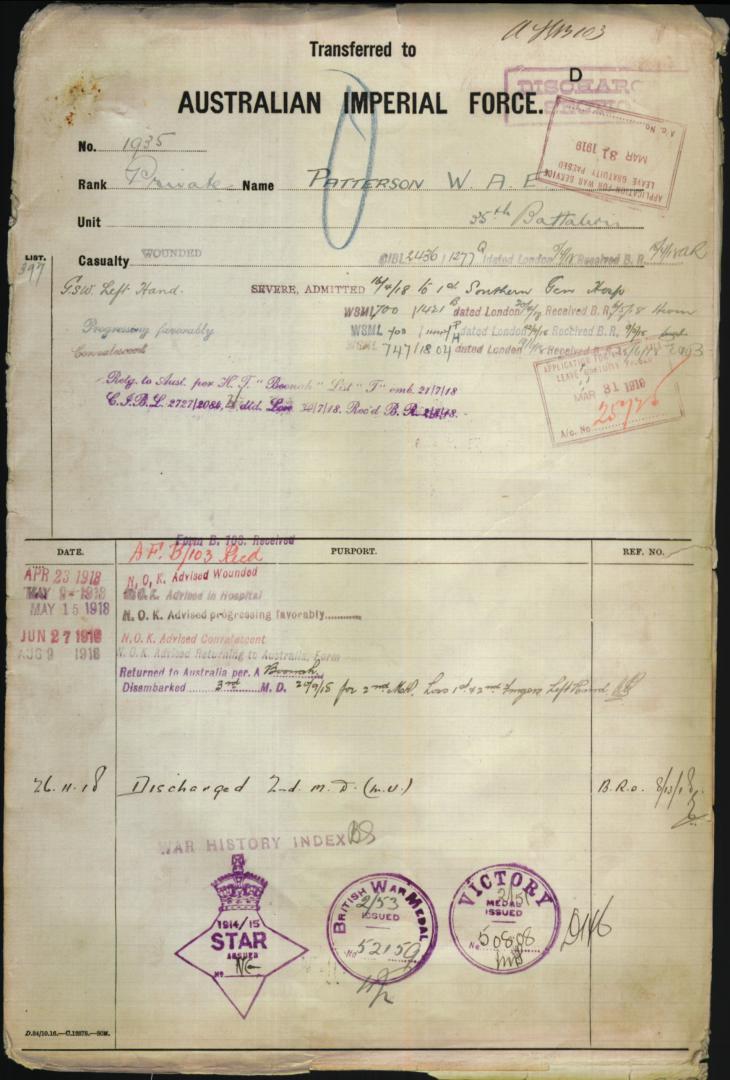 AFB103
Transferred to
D
DISCHARGE
AUSTRALIAN IMPERIAL FORCE.
No. 1935
APPLICATION FOR WAR SERVICE
LEAVE GRATUITY PASSED
MAR 31 1919
A/c. No.
Rank Private Name PATTERSON W. A. E
Unit 35th Battalion
LIST.
397
Casualty WOUNDED CIBL 2436 1277 dated London Received B. R.
GSW. Left Hand. SEVERE, ADMITTED 16/4/18 to 1st Southern Gen Hosp
WSML 700 1421 dated London Received B. R.
Progressing favorably WSML 700 dated London Received B. R.
Convalescent WSML 747/1804 dated London Received
APPLICATION FOR
LEAVE GRATUITY
MAR 31 1919
A/c. No. 25725
Retg. to Aust. per H. T. "Boonah" List "T" emb. 21/7/18
C.I.B.L. 2727/2084, dtd. Lon 30/7/18. Rec'd B. R.
DATE. PURPORT. REF. NO.
Form B. 103. Received
A.F. B/103 Recd
APR 23 1918 N. O. K. Advised Wounded
MAY 9 - 1918 N. O. K. Advised in Hospital
MAY 15 1918 N. O. K. Advised progressing favorably
JUN 27 1918 N. O. K. Advised Convalescent
AUG 9 1918 N. O. K. Advised Returning to Australia, Form
Returned to Australia per. A Boonah
Disembarked 3rd M. D. 20/9/18 for 2nd MD. Loss 1st & 2nd Fingers Left Hand
26.11.18 Discharged 2nd. M. D. (M.U.) B.R.O.
WAR HISTORY INDEX
1914/15
STAR
ISSUED
No
BRITISH WAR MEDAL
2/53
ISSUED
No 52159
VICTORY
MEDAL
2/50
ISSUED
No. 50808
D146
D.84/10.16.—C.12878.—50M.